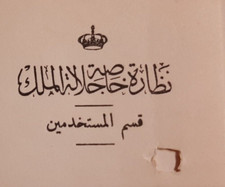 نظارة خاصة جلالة الملك
قسم المستخدمين